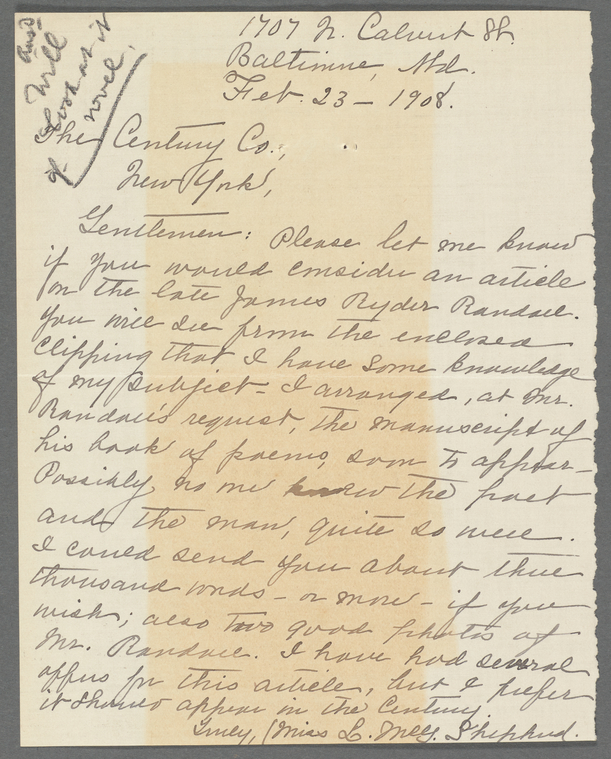 Ansd
Will
look at it
if
novel.
1707 N. Calvert St.
Baltimore, Md.
Feb. 23 – 1908.
The Century Co.,
New York,
Gentlemen: Please let me know
if you would consider an article
on the late James Ryder Randall.
You will see from the enclosed
clipping that I have some knowledge
of my subject – I arranged, at Mr.
Randall's request, the manuscript of
his book of poems, soon to appear –
Possibly no one knew the poet
and the man, quite so well.
I could send you about three
thousand words – or more – if you
wish; also two good photos of
Mr. Randall. I have had several
offers for this article, but I prefer
it should appear in the Century.
Truly, (Miss L. McG. Shepherd.